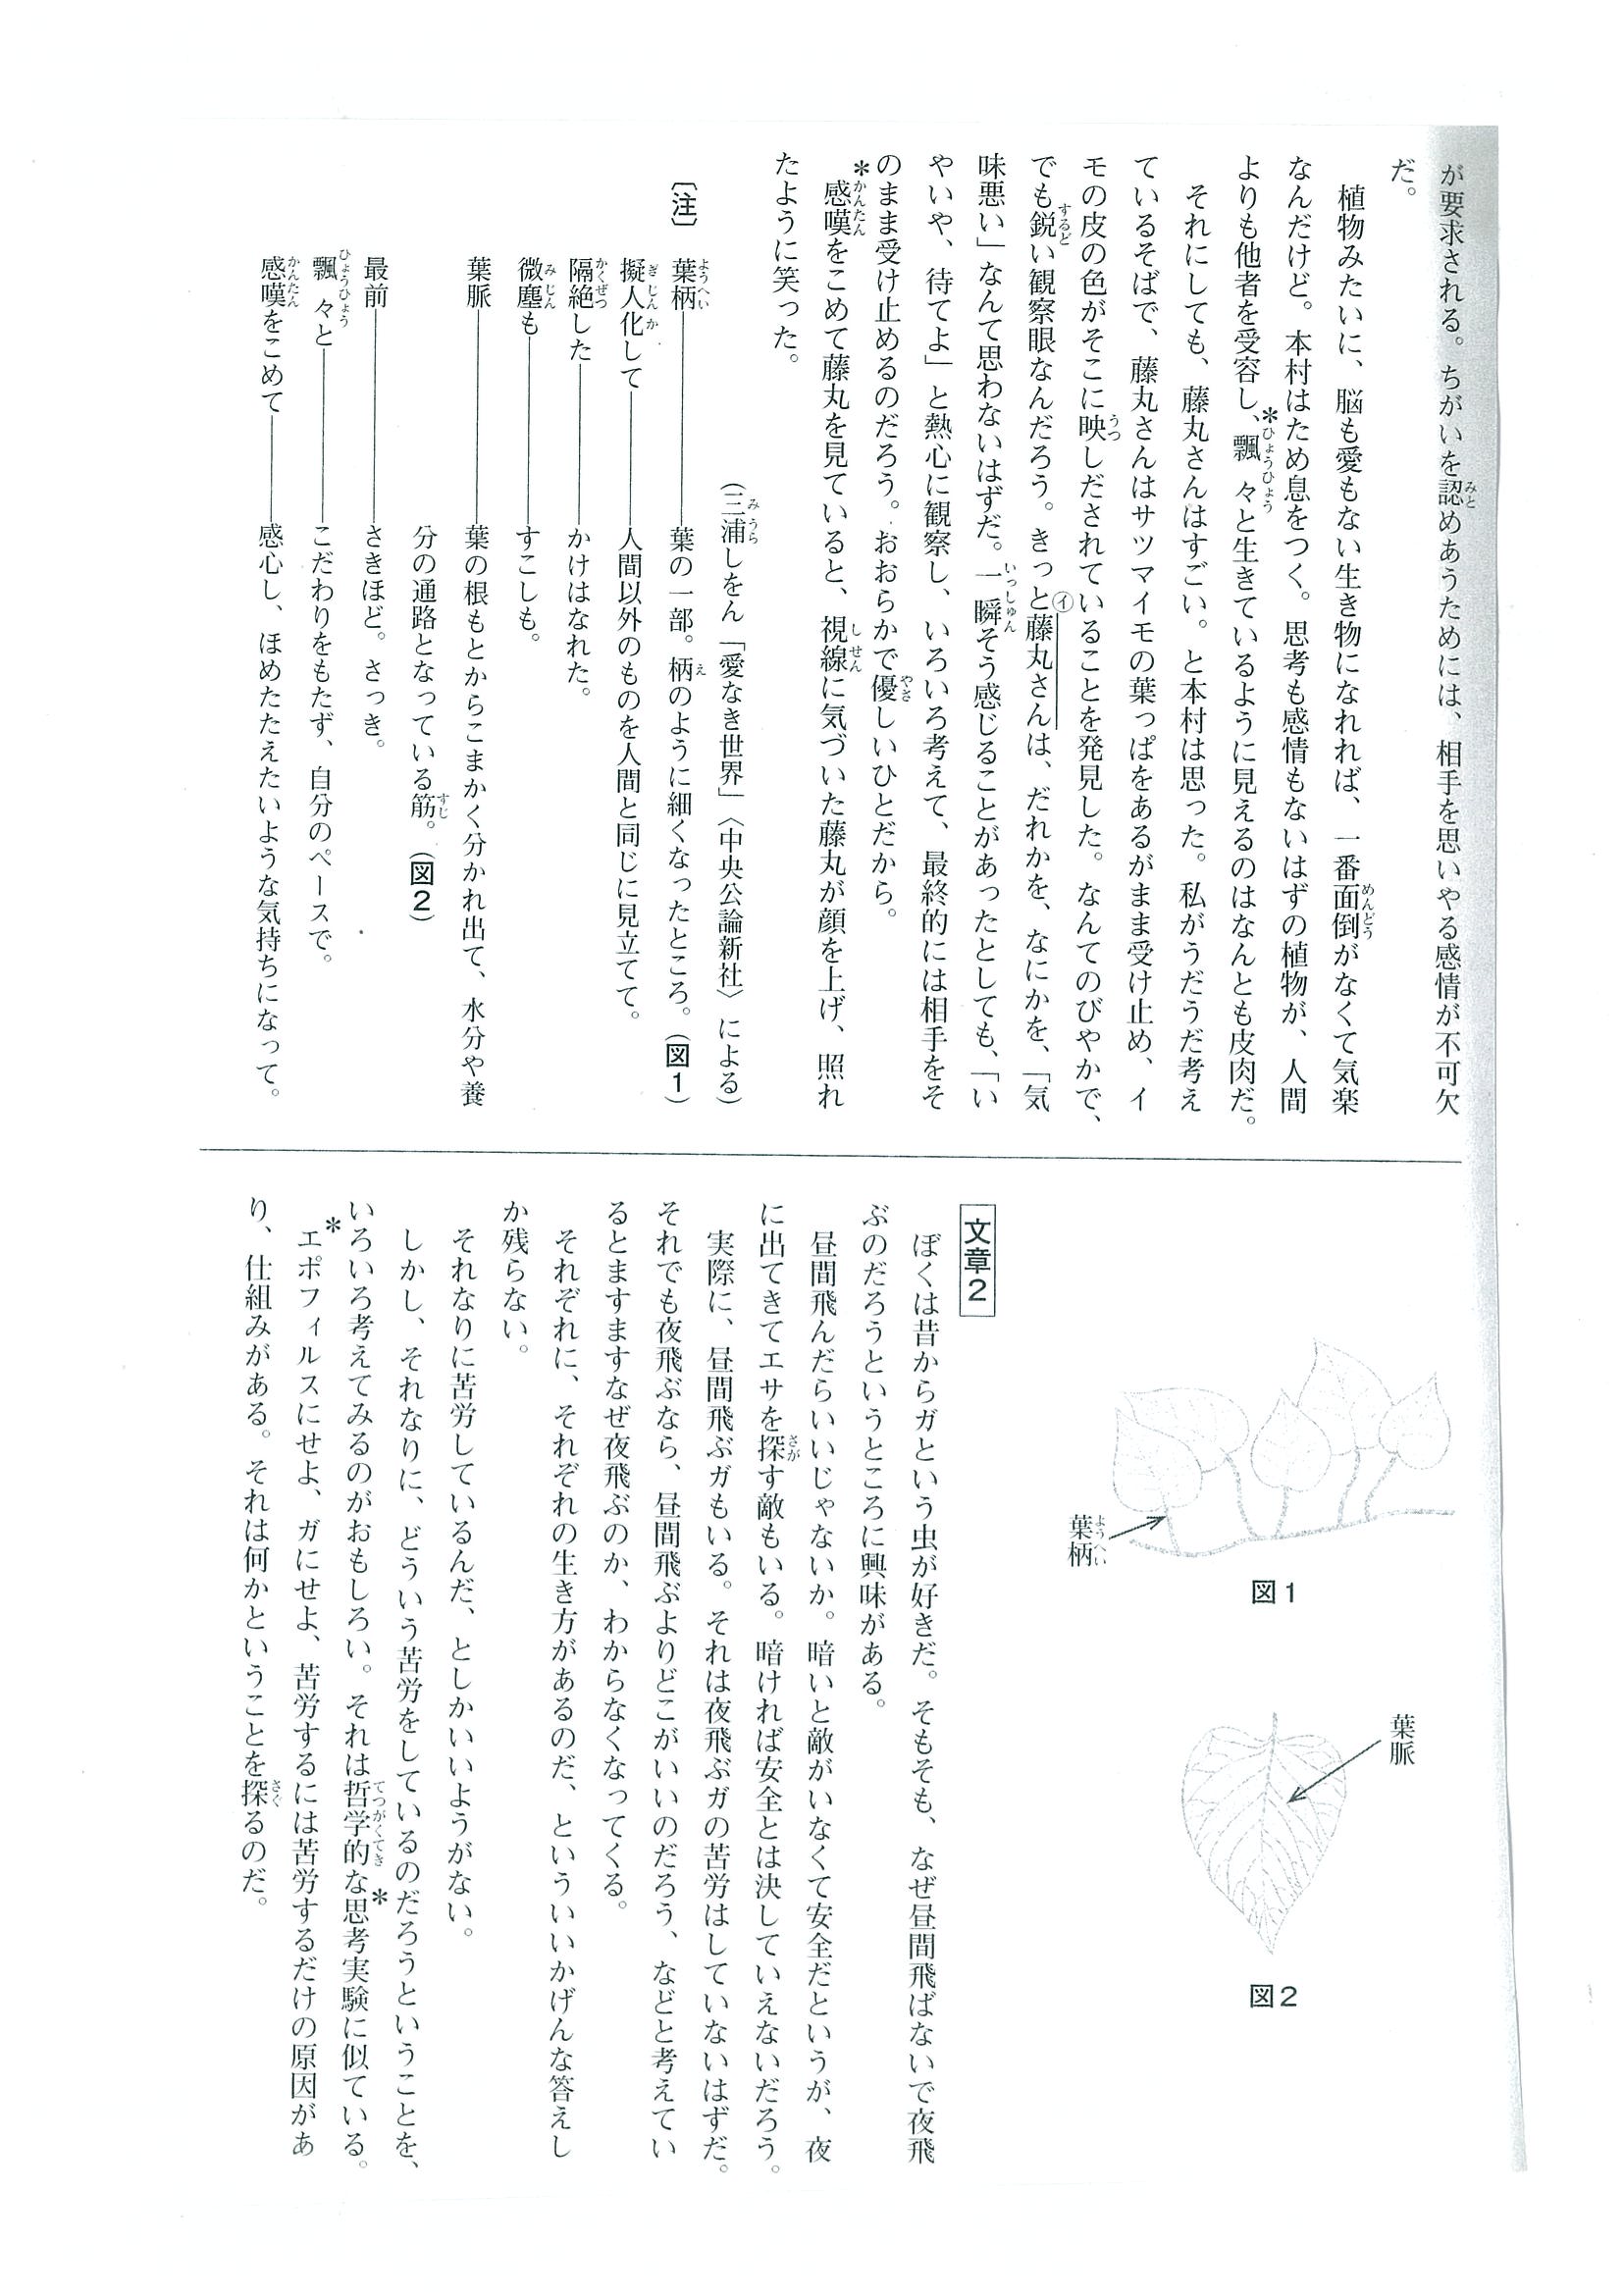 が要求される。ちがいを認めあうためには、相手を思いやる感情が不可欠
だ。
植物みたいに、脳も愛もない生き物になれれば、一番面倒がなくて気楽
なんだけど。本村はため息をつく。思考も感情もないはずの植物が、人間
よりも他者を受容し、*飄々と生きているように見えるのはなんとも皮肉だ。
それにしても、藤丸さんはすごい。と本村は思った。私がうだうだ考え
ているそばで、藤丸さんはサツマイモの葉っぱをあるがまま受け止め、イ
モの皮の色がそこに映しだされていることを発見した。なんてのびやかで、
でも鋭い観察眼なんだろう。きっと㋑藤丸さんは、だれかを、なにかを、「気
味悪い」なんて思わないはずだ。一瞬そう感じることがあったとしても、「い
やいや、待てよ」と熱心に観察し、いろいろ考えて、最終的には相手をそ
のまま受け止めるのだろう。おおらかで優しいひとだから。
*感嘆をこめて藤丸を見ていると、視線に気づいた藤丸が顔を上げ、照れ
たように笑った。
(三浦しをん「愛なき世界」〈中央公論新社〉による)
〔注〕 葉柄――葉の一部。柄のように細くなったところ。(図1)
擬人化して――人間以外のものを人間と同じに見立てて。
隔絶した――かけはなれた。
微塵も――すこしも。
葉脈――葉の根もとからこまかく分かれ出て、水分や養
分の通路となっている筋。(図2)
最前――さきほど。さっき。
飄々と――こだわりをもたず、自分のペースで。
感嘆をこめて――感心し、ほめたたえたいような気持ちになって。
葉柄
図1
葉脈
図2
文章2
ぼくは昔からガという虫が好きだ。そもそも、なぜ昼間飛ばないで夜飛
ぶのだろうというところに興味がある。
昼間飛んだらいいじゃないか。暗いと敵がいなくて安全だというが、夜
に出てきてエサを探す敵もいる。暗ければ安全とは決していえないだろう。
実際に、昼間飛ぶガもいる。それは夜飛ぶガの苦労はしていないはずだ。
それでも夜飛ぶなら、昼間飛ぶよりどこがいいのだろう、などと考えてい
るとますますなぜ夜飛ぶのか、わからなくなってくる。
それぞれに、それぞれの生き方があるのだ、といういいかげんな答えし
か残らない。
それなりに苦労しているんだ、としかいいようがない。
しかし、それなりに、どういう苦労をしているのだろうということを、
いろいろ考えてみるのがおもしろい。それは哲学的な*思考実験に似ている。
*エポフィルスにせよ、ガにせよ、苦労するには苦労するだけの原因があ
り、仕組みがある。それは何かということを探るのだ。